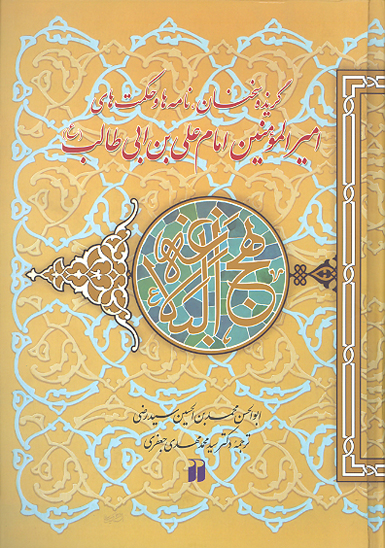 گزیده سخنان، نامه ها و حکمت های
امیرالمؤمنین امام علی بن ابی طالب (ع)
نهج البلاغه
ابوالحسن محمد بن الحسین سید رضی
ترجمه دکتر سید محمد مهدی جعفری